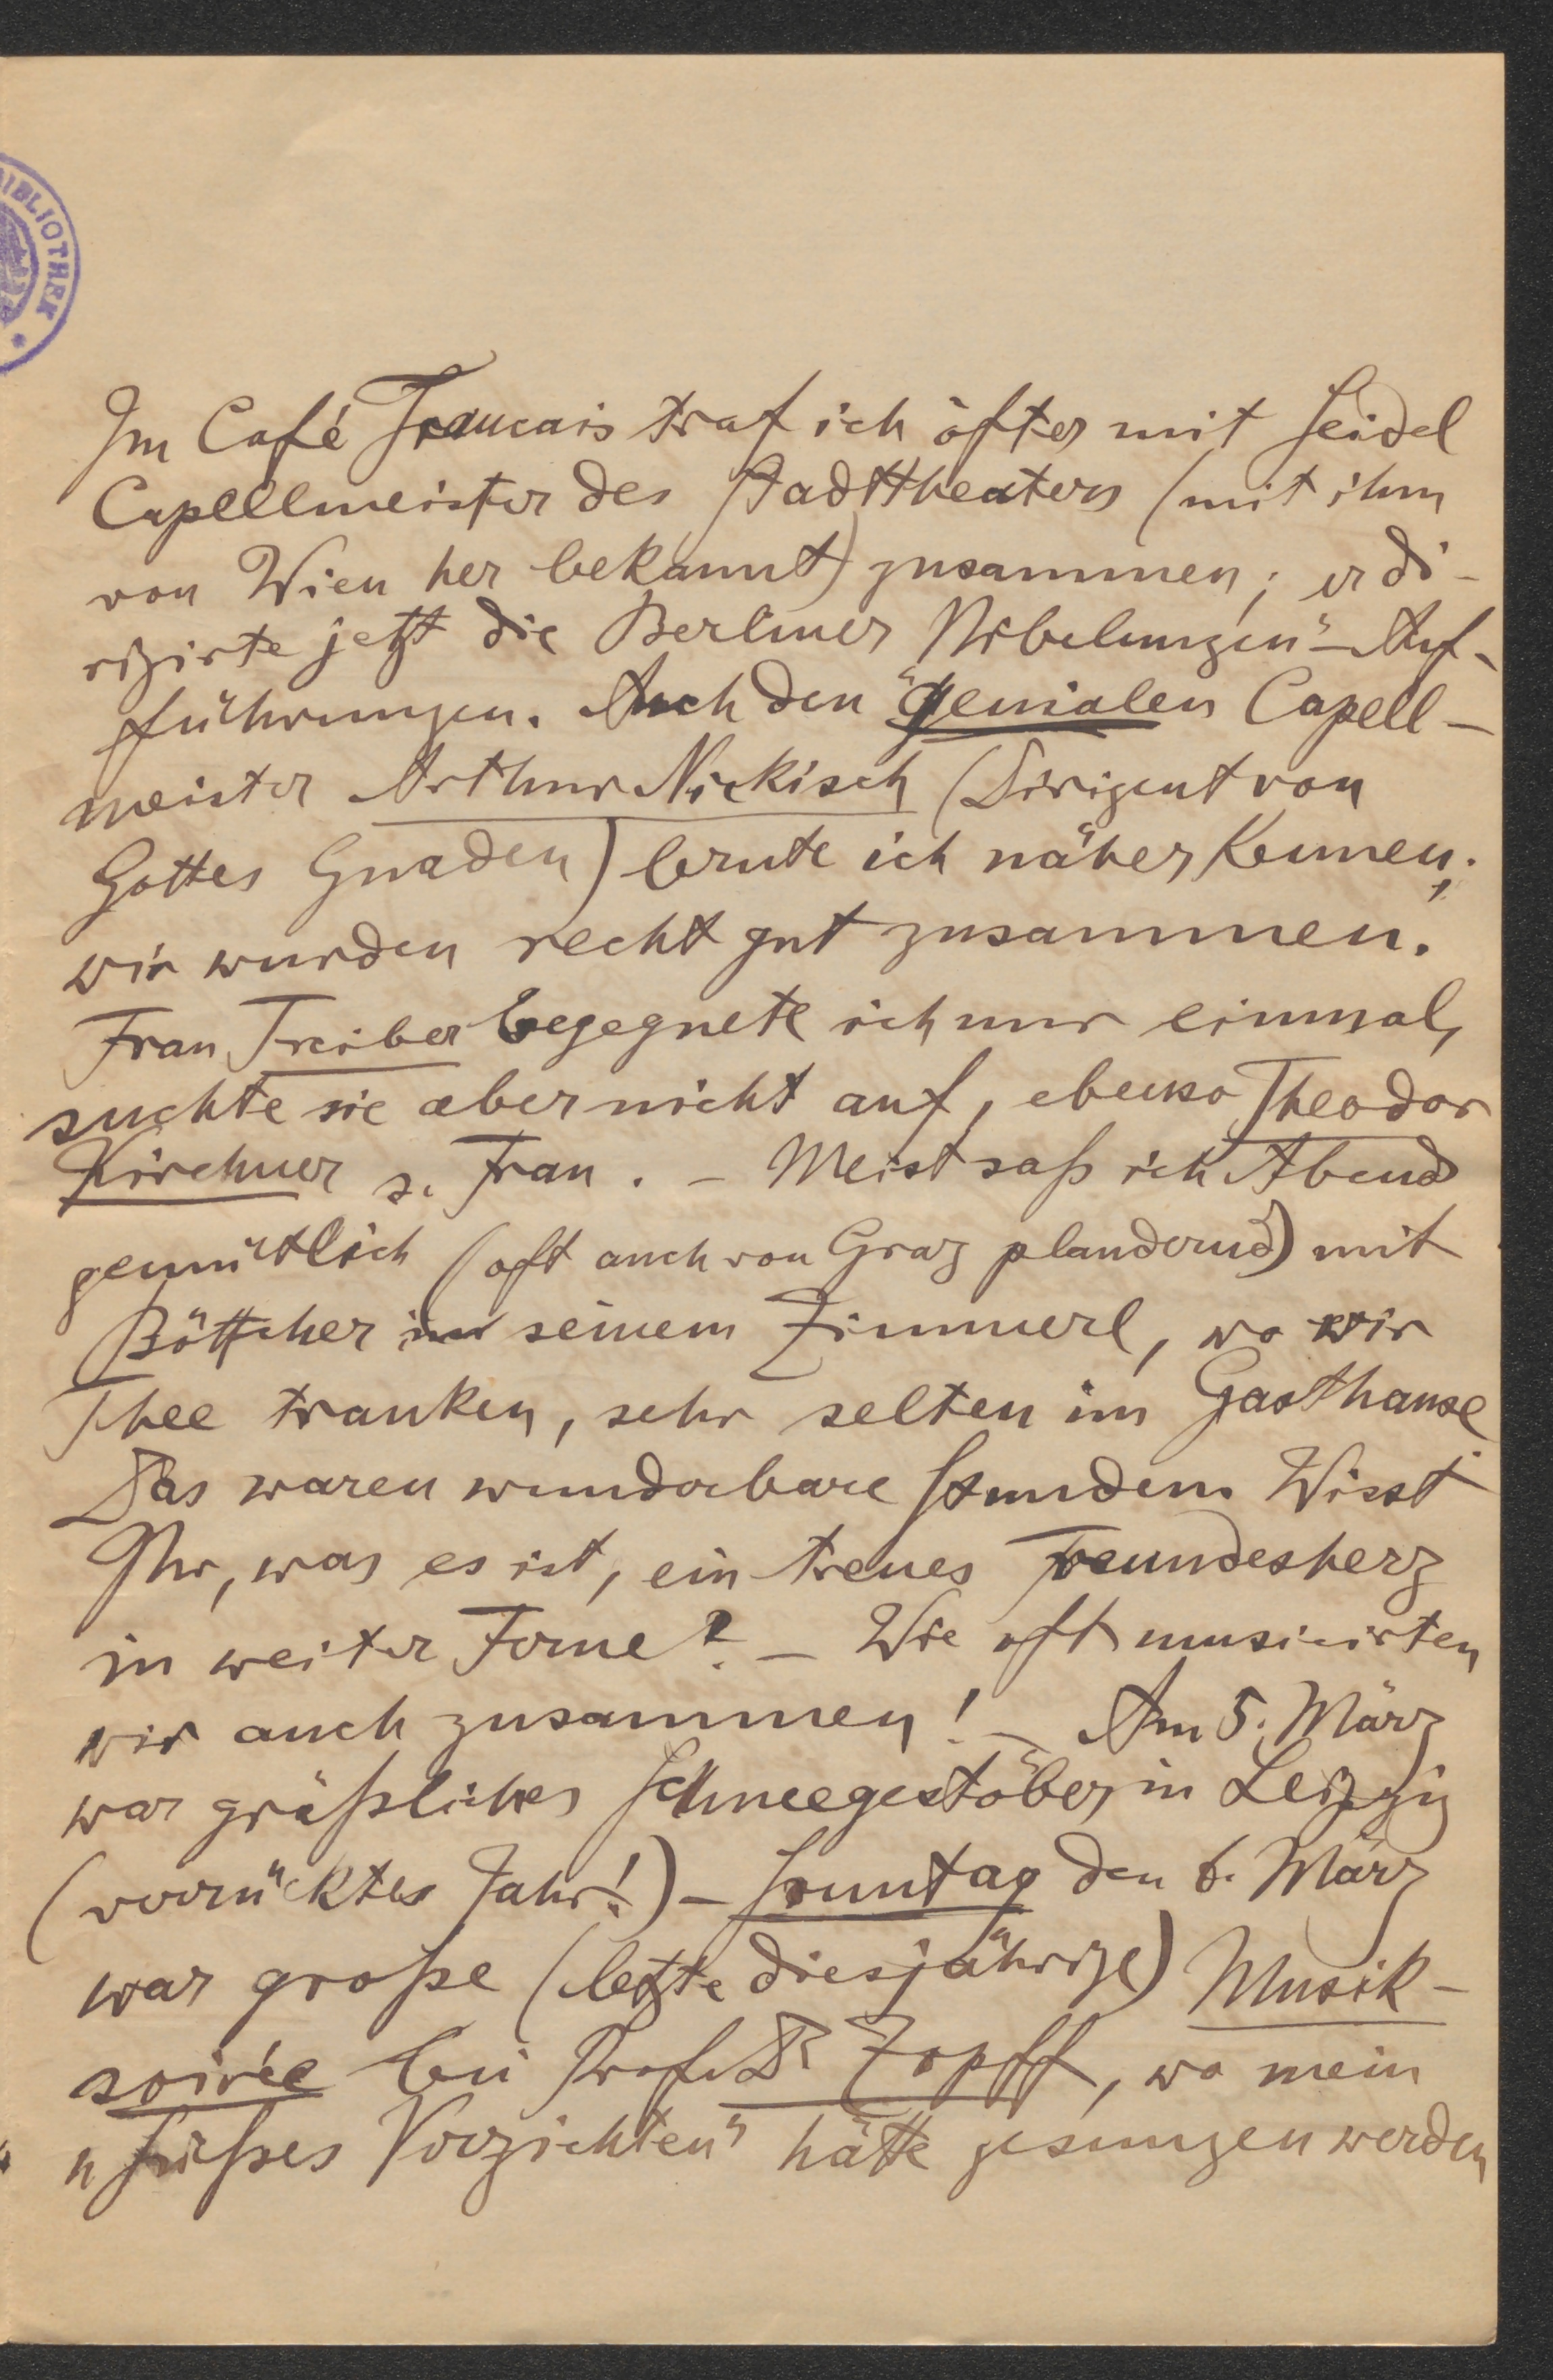 BIBLIOTHEK
Im Café Francais traf ich öfter mit Seidel
Capellmeister des Stadttheaters (mit ihm
von Wien her bekannt) zusammen; er di-
rigirte jetzt die Berliner Nibelungen"-Auf-
führungen. Auch den "genialen Capell-
meister Arthur Nickisch (Dirigent von
Gottes Gnaden) lernte ich näher kennen;
wir wurden recht gut zusammen.
Frau Treiber begegnete ich nur einmal,
suchte sie aber nicht auf, ebenso Theodor
Kirchner s. Frau. – Meist saß ich Abend
gemütlich (oft auch von Graz plaudernd) mit
Böttcher in seinem Zimmerl, wo wir
Thee tranken, sehr selten im Gasthause
Das waren wunderbare Stunden. Wisst
Ihr, was es ist, ein treues Freundesherz
in weiter Ferne? – Wie oft musicirten
wir auch zusammen! – Am 5. März
war gräßliches Schneegestöber in Leipzig
(verrücktes Jahr!) – Sonntag den 6. März
war große (letzte diesjährige) Musik-
soirée bei Prof. Dr Zopff, wo mein
"süßes Verzichten" hätte gesungen werden